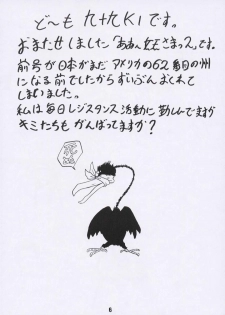 ど〜も 九十九KIです。
おまたせしました「あぁん女王さまっS」です。
前号が日本がまだ アメリカの62番目の州
になる前でしたからずいぶんおくれて
しまいました。
私は毎日レジスタンス活動に勤しんでますが
キミたちも がんばってますか？
6